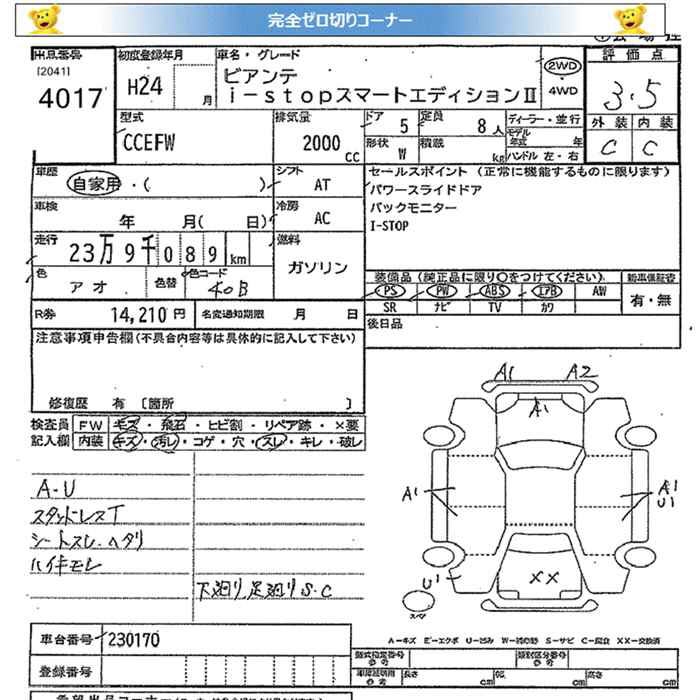 完全ゼロ切りコーナー
出品番号 初度登録年月 車名・グレード 評価点
[2041] 4017 H24 月 ビアンテ 2WD 3.5
i-stopスマートエディションⅡ 4WD
外装 内装
型式 排気量 ドア 5 定員 8人 ディーラー・並行
CCEFW 2000cc 形状 W 積載 kg モデル年式 年 C C
ハンドル 左・右
車歴 自家用・( ) シフト AT セールスポイント (正常に機能するものに限ります)
パワースライドドア
車検 年 月( 日) 冷房 AC バックモニター
I-STOP
走行 23万9千089km 燃料 ガソリン
色 アオ 色替 色コード 40B 装備品(純正品に限り○をつけてください) 新車保証書
PS PW ABS エアB AW 有・無
R券 14,210円 名変通知期限 月 日 SR ナビ TV カワ
後日品
注意事項申告欄(不具合内容等は具体的に記入して下さい)
修復歴 有 [箇所 ]
検査員 FW キズ・飛石・ヒビ割・リペア跡・×要
記入欄 内装 キズ・汚レ・コゲ・穴・スレ・キレ・破レ
A1 A2
A1
A・U
スタッドレスT
シートスレ・ヘタリ
ハイキモレ
下廻り足廻りS.C
A1
A1
U1
U1
XX
スペア
A-キズ E-エクボ U-凹み W-補修跡 S-サビ C-腐食 XX-交換済
車台番号 230170
登録番号
型式指定番号 参考 類別区分番号 参考
車庫証明用 参考 長さ cm 幅 cm 高さ cm
希望出品コーナー